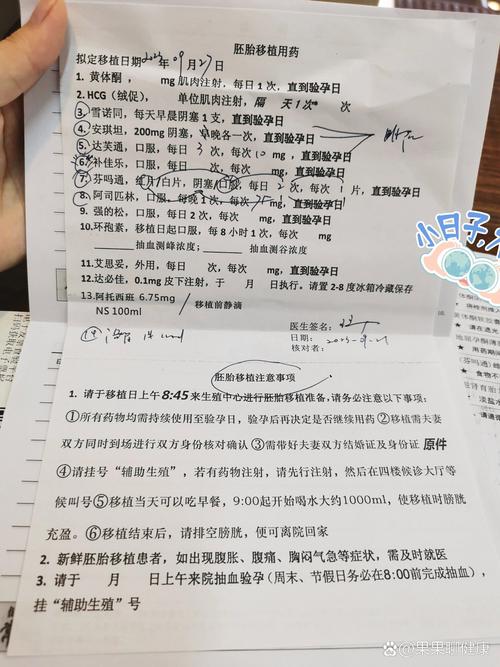 胚胎移植用药
拟定移植日期2023年09月27日
1. 黄体酮， mg 肌肉注射，每日 1 次，直到验孕日
2. HCG (绒促)， 单位肌肉注射，隔 天 1 次 次
3. 雪诺同，每天早晨阴塞 1 支，直到验孕日
4. 安琪坦，200mg 阴塞，早晚各一次，直到验孕日
5. 达芙通，口服，每日 3 次，每次 10 mg，直到验孕日
6. 补佳乐，口服，每日 次，每次 mg，直到验孕日
7. 芬吗通，红片/白片，阴塞/口服，每日 2 次，每次 1 片，直到验孕日
8. 阿司匹林，口服，每晚 1 次，每次 75 mg，直到验孕日
9. 强的松，口服，每日 2 次，每次 mg，直到验孕日
10. 环孢素，移植日起口服，每 8 小时 1 次，每次 mg
抽血测峰浓度； 抽血测谷浓度
11. 艾思妥，外用，每日 次，每次 mg，直到验孕日
12. 达必佳，0.1mg 皮下注射，于 月 日执行。请置 2-8 度冰箱冷藏保存
13. 阿托西班 6.75mg / 移植前静滴
NS 100ml
医生签名：
日期：2023-9-21
核对者：
胚胎移植注意事项
1. 请于移植日上午 8:45 来生殖中心进行胚胎移植准备，请务必注意以下事项：
①所有药物均需持续使用至验孕日，验孕后再决定是否继续用药②移植需夫妻
双方同时到场进行双方身份核对确认③需带好夫妻双方结婚证及身份证 原件
④请挂号“辅助生殖”，若有药物注射，请先行注射，然后在四楼候诊大厅等
候叫号⑤移植当天可以吃早餐，9:00起开始喝水大约1000ml，使移植时膀胱
充盈。⑥移植结束后，请排空膀胱，便可离院回家
2. 新鲜胚胎移植患者，如出现腹胀、腹痛、胸闷气急等症状，需及时就医
3. 请于 月 日上午来院抽血验孕(周末、节假日务必在8:00前完成抽血)，
挂“辅助生殖”号
小日子,
百度 @果果聊健康